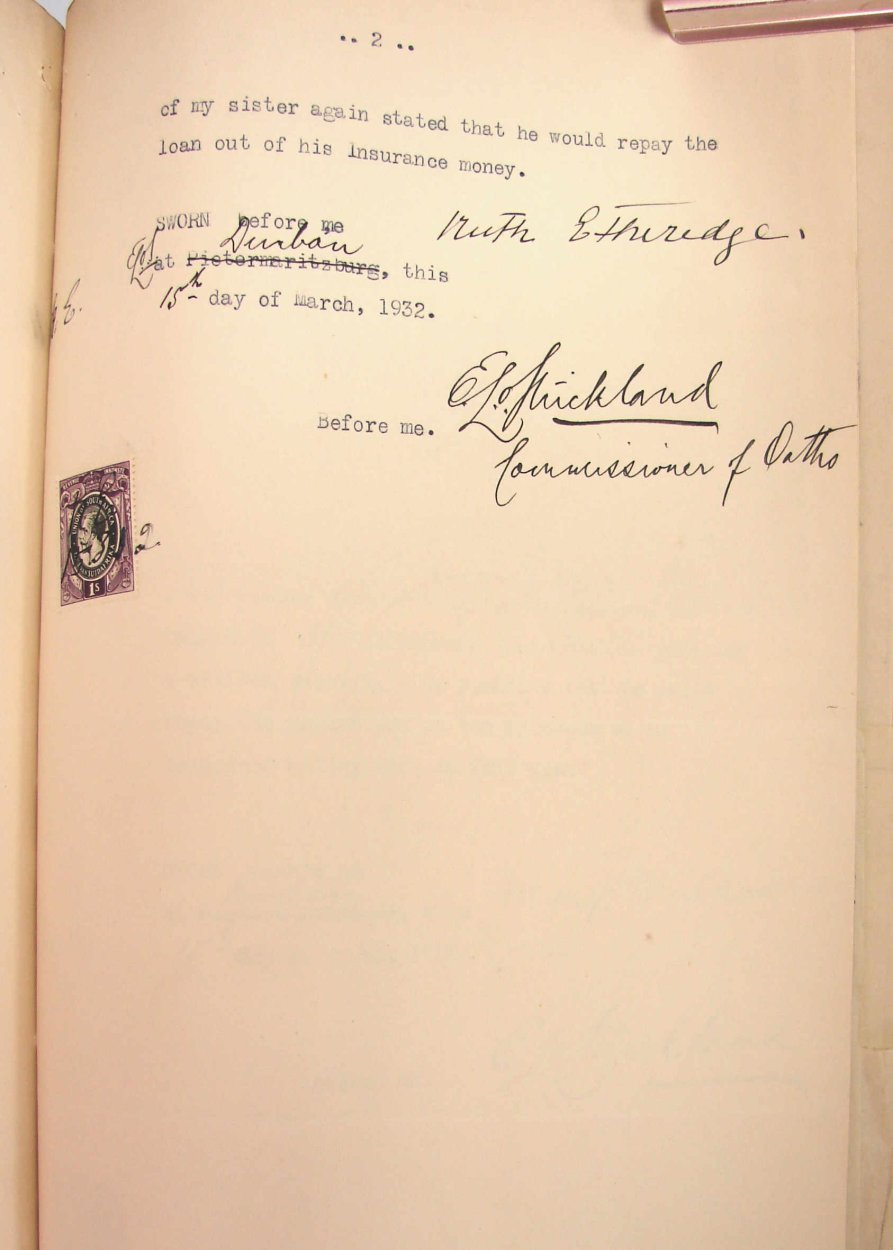 .. 2 ..
of my sister again stated that he would repay the
loan out of his insurance money.
SWORN before me
Durban
at Pietermaritzburg, this
15th day of March, 1932.
Ruth Etheredge.
E.
Before me.
E.L.O. Strickland
Commissioner of Oaths
REVENUE INKOMSTE
UNION OF SOUTH AFRICA
1s